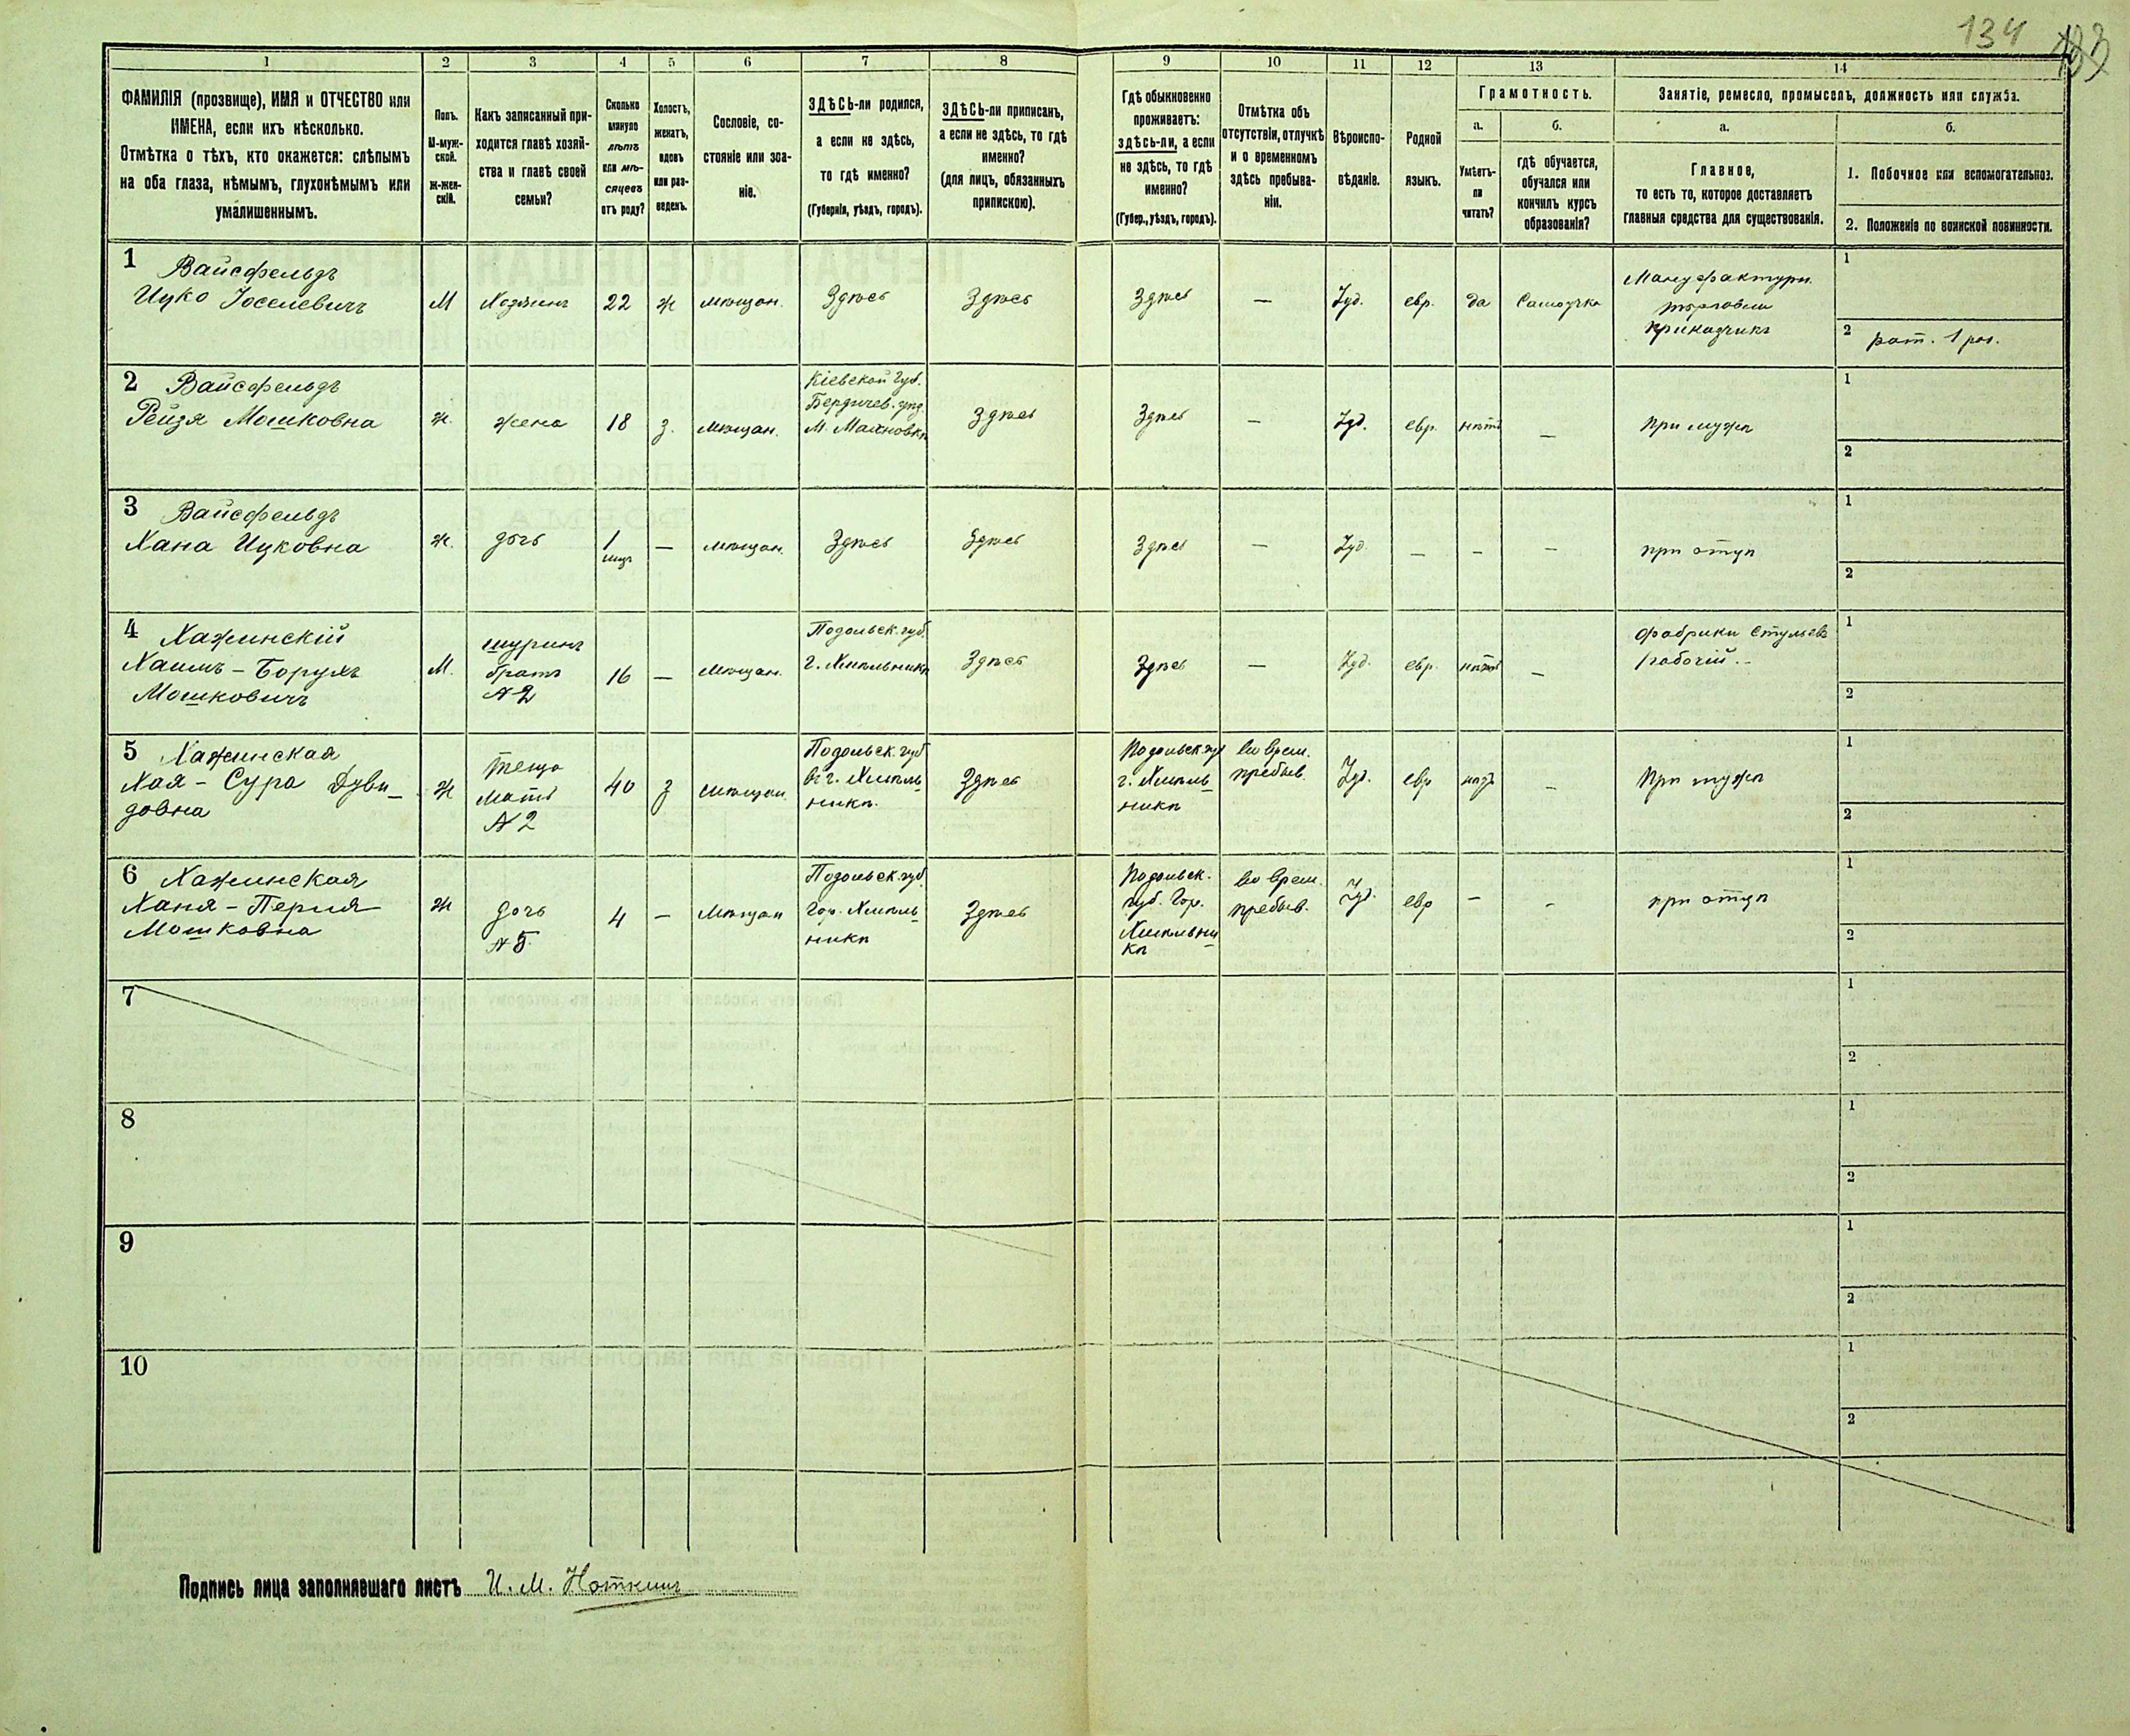 134
133
1
2
3
4
5
6
7
8
9
10
11
12
13
14
ФАМИЛІЯ (прозвище), ИМЯ и ОТЧЕСТВО или
ИМЕНА, если ихъ нѣсколько.
Отмѣтка о тѣхъ, кто окажется: слѣпымъ
на оба глаза, нѣмымъ, глухонѣмымъ или
умалишеннымъ.
Полъ.
М-муж-
ской.
Ж-жен-
скій.
Какъ записанный при-
ходится главѣ хозяй-
ства и главѣ своей
семьи?
Сколько
минуло
лѣтъ
или мѣ-
сяцевъ
отъ роду?
Холостъ,
женатъ,
вдовъ
или раз-
веденъ.
Сословіе, со-
стояніе или зва-
ніе.
ЗДѢСЬ-ли родился,
а если не здѣсь,
то гдѣ именно?
(Губернія, уѣздъ, городъ).
ЗДѢСЬ-ли приписанъ,
а если не здѣсь, то гдѣ
именно?
(для лицъ, обязанныхъ
припискою).
Гдѣ обыкновенно
проживаетъ:
здѣсь-ли, а если
не здѣсь, то гдѣ
именно?
(Губер., уѣздъ, городъ).
Отмѣтка объ
отсутствіи, отлучкѣ
и о временномъ
здѣсь пребыва-
ніи.
Вѣроиспо-
вѣданіе.
Родной
языкъ.
Грамотность.
а.
Умѣетъ-
ли
читать?
б.
гдѣ обучается,
обучался или
кончилъ курсъ
образованія?
Занятіе, ремесло, промыселъ, должность или служба.
а.
Главное,
то есть то, которое доставляетъ
главныя средства для существованія.
б.
1. Побочное или вспомогательное.
2. Положеніе по воинской повинности.
1 Вайсфельдъ
Ицко Іоселевичъ
М
Хозяинъ
22
ж
мѣщан.
Здѣсь
Здѣсь
Здѣсь
—
Іуд.
евр.
да
Самоучка
Мануфактурн.
торговли
приказчикъ
1
2 рат. 1 раз.
2 Вайсфельдъ
Рейзя Мошковна
ж.
жена
18
з.
мѣщан.
Кіевской Губ.
Бердичев. уѣд.
М. Махновкѣ
Здѣсь
Здѣсь
—
Іуд.
евр.
нѣтъ
—
При мужѣ
1
2
3 Вайсфельдъ
Хана Ицковна
ж.
дочь
1
мѣц
—
мѣщан.
Здѣсь
Здѣсь
Здѣсь
—
Іуд.
—
—
—
при отцѣ
1
2
4 Хажинскій
Хаимъ-Борухъ
Мошковичъ
М.
шуринъ
братъ
№2
16
—
мѣщан.
Подольск. губ.
г. Хмѣльникѣ
Здѣсь
Здѣсь
—
Іуд.
евр.
нѣтъ
—
фабрики стульевъ
рабочій.
1
2
5 Хажинская
Хая-Сура Дуви_
довна
ж
теща
мать
№2
40
з
мѣщан
Подольск. губ
въ г. Хмѣль
никѣ.
Здѣсь
Подольск. губ
г. Хмѣль
никѣ
во врем.
пребыв.
Іуд.
евр
нѣтъ
—
При мужѣ
1
2
6 Хажинская
Ханя-Перля
Мошковна
ж
дочь
№5
4
—
мѣщан
Подольск. губ.
Гор. Хмѣль
никѣ
Здѣсь
Подольск.
губ. Гор.
Хмѣльни
кѣ
во врем.
пребыв.
Іуд.
евр
—
—
при отцѣ
1
2
7
1
2
8
1
2
9
1
2
10
1
2
Подпись лица заполнявшаго листъ И. М. Ноткинъ